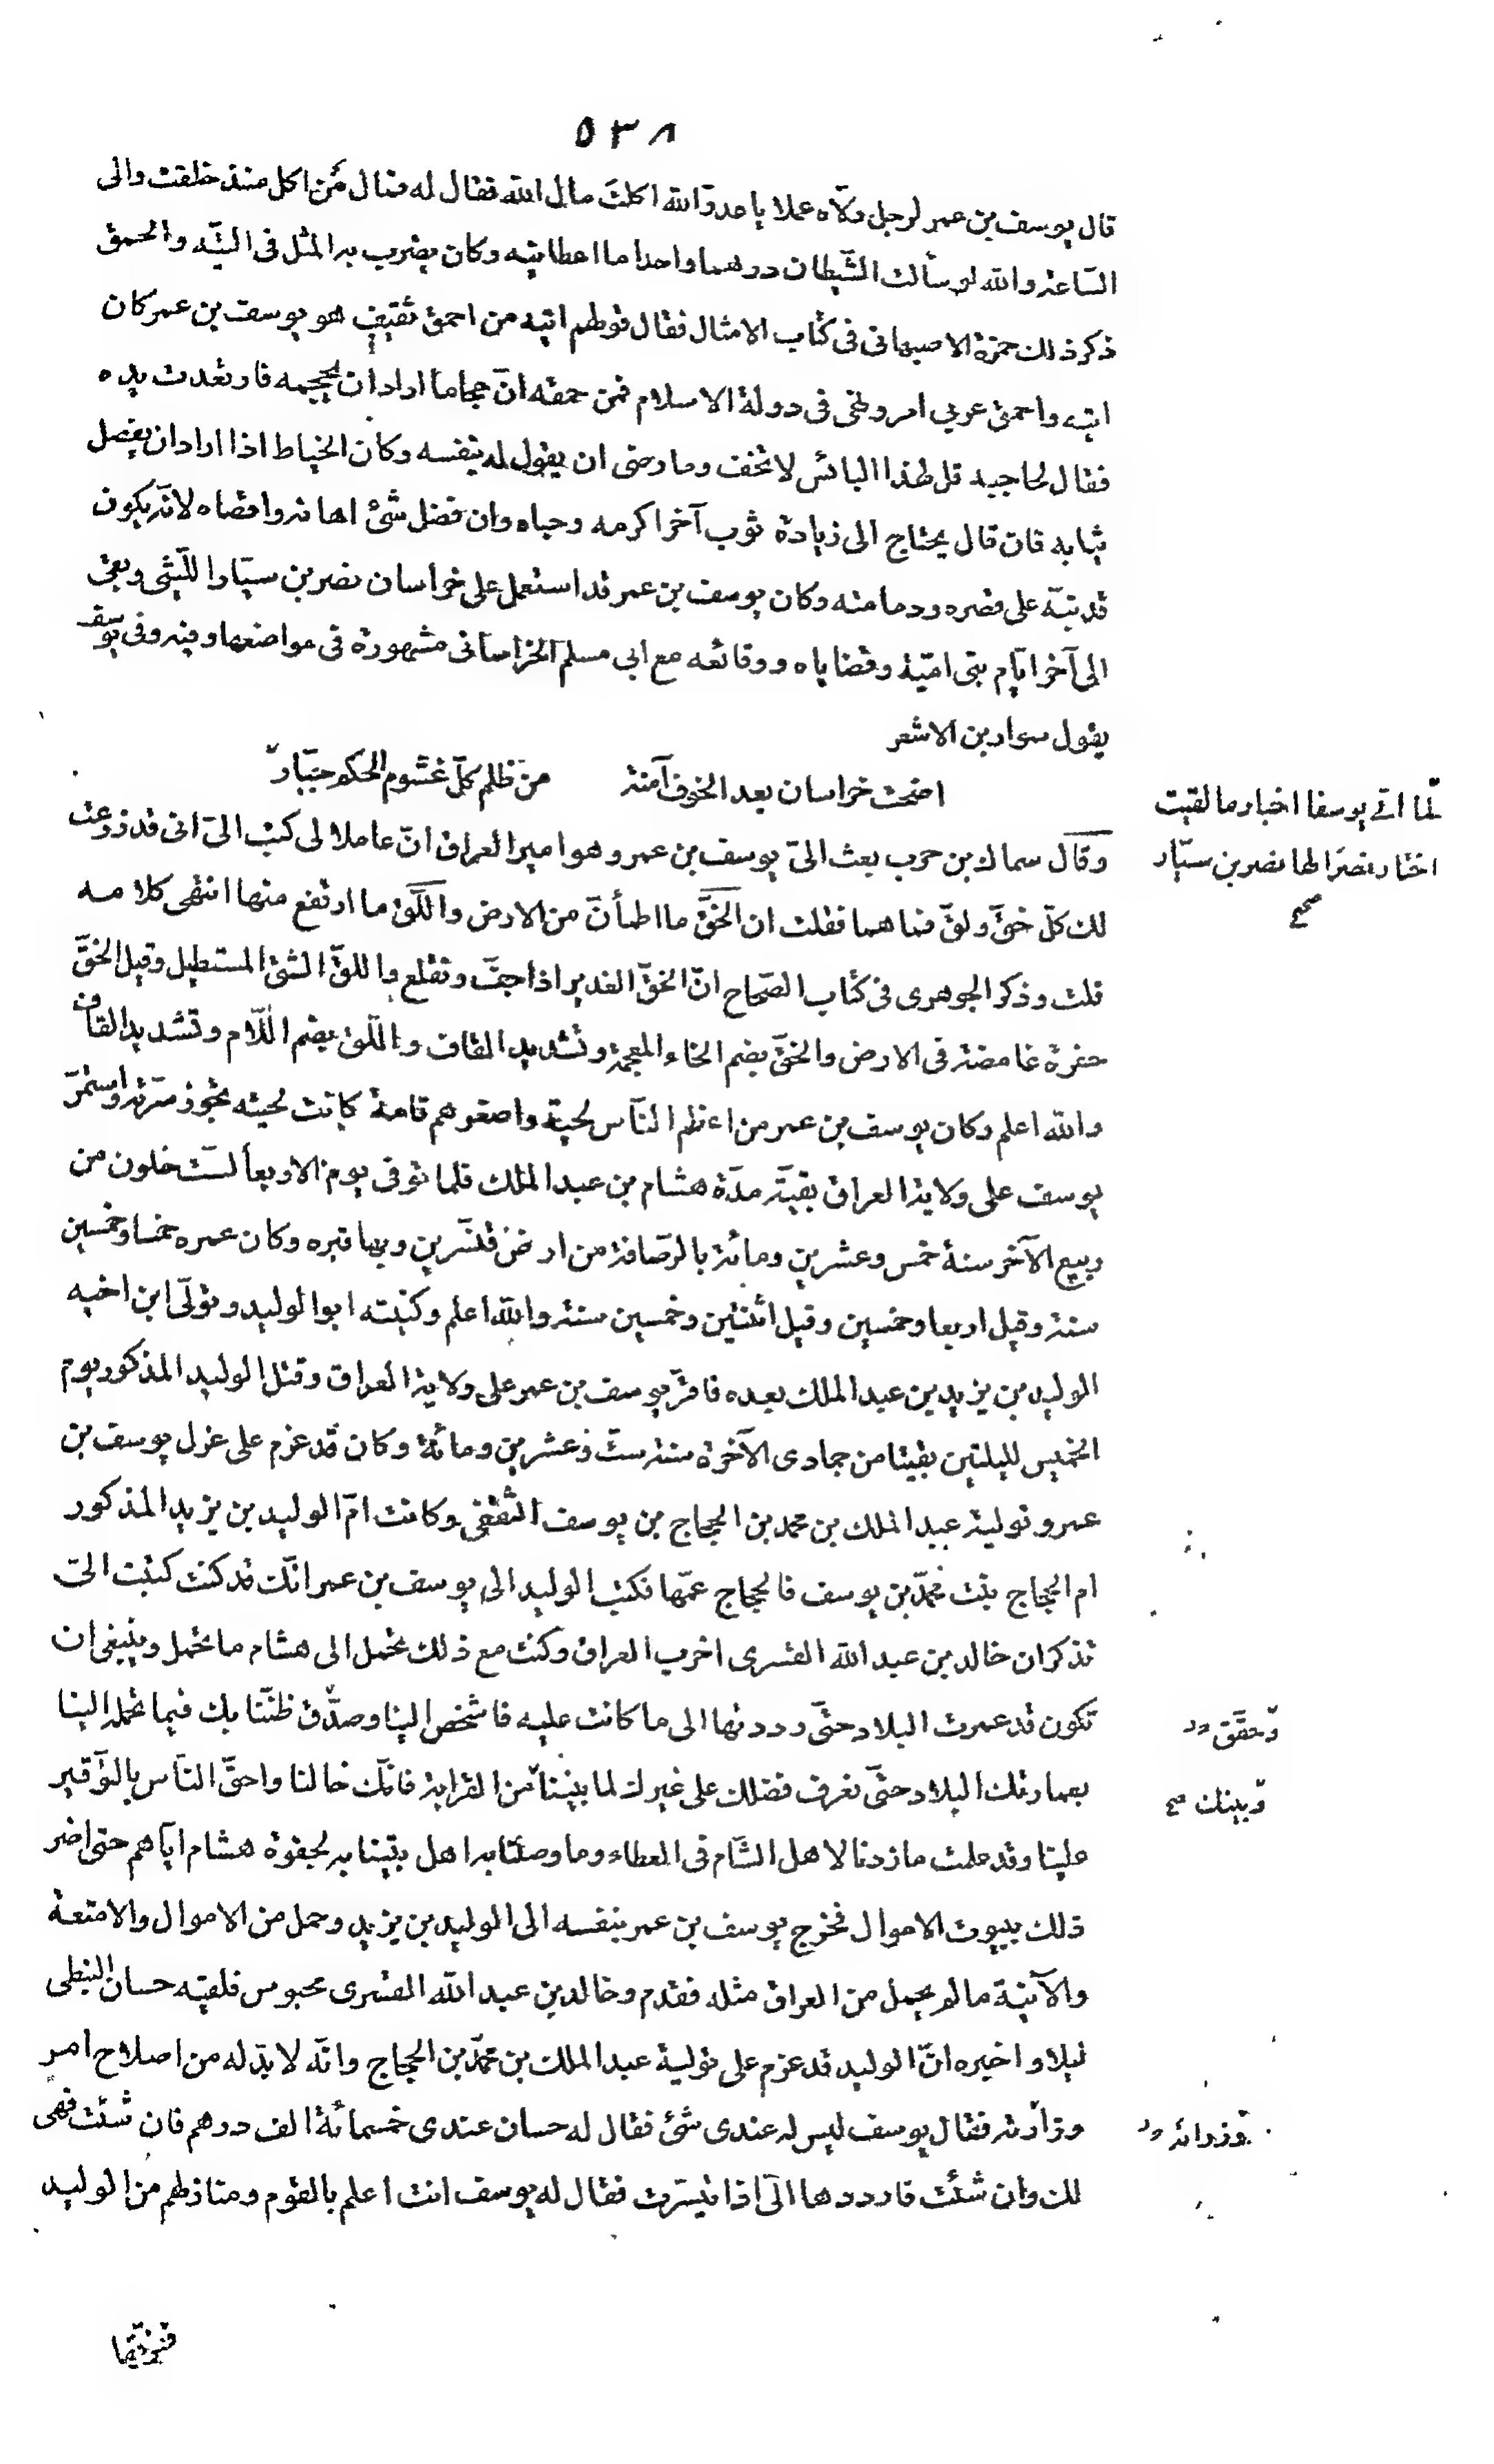 ٥٣٨
قال يوسف بن عمر لرجل ولّاه عملا يا عدوّ الله اكلت مال الله فقال له فمال من اكل منذ خلقت والى
السّاعة والله لو سألت الشّيطان درهما واحدا ما اعطانيه وكان يضرب به المثل فى التّيه والحمق
ذكر ذلك حمزة الاصبهانى فى كتاب الامثال فقال قولهم اتيه من احمق ثقيف هو يوسف بن عمر كان
اتيه واحمق عربى امر ونهى فى دولة الاسلام فمن حمقه انّ حجاما اراد ان يحجمه فارتعدت يده
فقال لحاجبه قل لهذا البائس لا تخف وما رضى ان يقول له بنفسه وكان الخياط اذا اراد ان يفصل
ثيابه فان قال يحتاج الى زيادة ثوب آخر اكرمه وحباه وان فضل شئ اهانه واقصاه لانّه يكون
قد نبّه على قصره ودمامته وكان يوسف بن عمر قد استعمل على خراسان نصر بن سيّار الليثى وبقى
الى آخر ايّام بنى اميّة وقضاياه ووقائعه مع ابى مسلم الخراسانى مشهورة فى مواضعها وفيه وفى يوسف
يقول سوار بن الاشعر
اضحت خراسان بعد الخوف آمنة من ظلم كلّ غشوم الحكم جبّار
لمّا اتى يوسفا اخبار ما لقيت
اختار نصرا لها نصر بن سيّار
صح
وقال سماك بن حرب بعث الىّ يوسف بن عمر وهو امير العراق انّ عاملا لى كتب الىّ انى قد زرعت
لك كلّ خقّ ولقّ فما هما فقلت ان الخقّ ما اطمأنّ من الارض واللّقّ ما ارتفع منها انتهى كلامه
قلت وذكر الجوهرى فى كتاب الصّحاح انّ الخقّ الغدير اذا جفّ وتقلع واللقّ الشئ المستطيل وقيل الخقّ
حفرة غامضة فى الارض والخقّ بضم الخاء المعجمة وتشديد القاف واللّق بضم اللّام وتشديد القاف
والله اعلم وكان يوسف بن عمر من اعظم النّاس لحية واصغرهم قامة كانت لحيته تجوز سرّته واستمرّ
يوسف على ولاية العراق بقيّة مدّة هشام بن عبد الملك فلما توفى يوم الاربعأ لستّ خلون من
ربيع الآخر سنة خمس وعشرين ومائة بالرّصافة من ارض قنّسرين وبها قبره وكان عمره خمسا وخمسين
سنة وقيل اربعا وخمسين وقيل اثنتين وخمسين سنة والله اعلم وكنيته ابو الوليد وتولّى ابن اخيه
الوليد بن يزيد بن عبد الملك بعده فاقرّ يوسف بن عمر على ولاية العراق وقتل الوليد المذكور يوم
الخميس لليلتين بقيتا من جمادى الآخرة سنة ستّ وعشرين ومائة وكان قد عزم على عزل يوسف بن
عمر وتولية عبد الملك بن محمد بن الحجاج بن يوسف الثقفى وكانت امّ الوليد بن يزيد المذكور
ام الحجاج بنت محمّد بن يوسف فالحجاج عمّها فكتب الوليد الى يوسف بن عمر انّك قد كنت كتبت الىّ
تذكر ان خالد بن عبد الله القسرى اخرب العراق وكنت مع ذلك تحمل الى هشام ما تحمل وينبغى ان
تكون قد عمرت البلاد حتّى رددتها الى ما كانت عليه فاشخص الينا وصدّق ظنّنا بك فيما تحمله الينا
وحقّق
بعمارتك البلاد حتّى نعرف فضلك على غيرك لما بيننا من القرابة فانّك خالنا واحقّ النّاس بالتّوقير
وبينك صح
علينا وقد علمت ما زدنا لاهل الشّام فى العطاء وما وصلنا به اهل بيتنا به لجفوة هشام ايّاهم حتى اضر
ذلك ببيوت الاموال فخرج يوسف بن عمر بنفسه الى الوليد بن يزيد وحمل من الاموال والامتعة
والآنية ما لم يحمل من العراق مثله فقدم وخالد بن عبد الله القسرى محبوس فلقيه حسان النبطى
ليلا واخبره انّ الوليد قد عزم على تولية عبد الملك بن محمّد بن الحجاج وانّه لا بدّ له من اصلاح امر
وزارته فقال يوسف ليس له عندى شئ فقال له حسان عندى خمسمائة الف درهم فان شئت فهى
وزرائه
لك وان شئت فارددها الىّ اذا تيسّرت فقال له يوسف انت اعلم بالقوم ومنازلهم من الوليد
ففرّقها